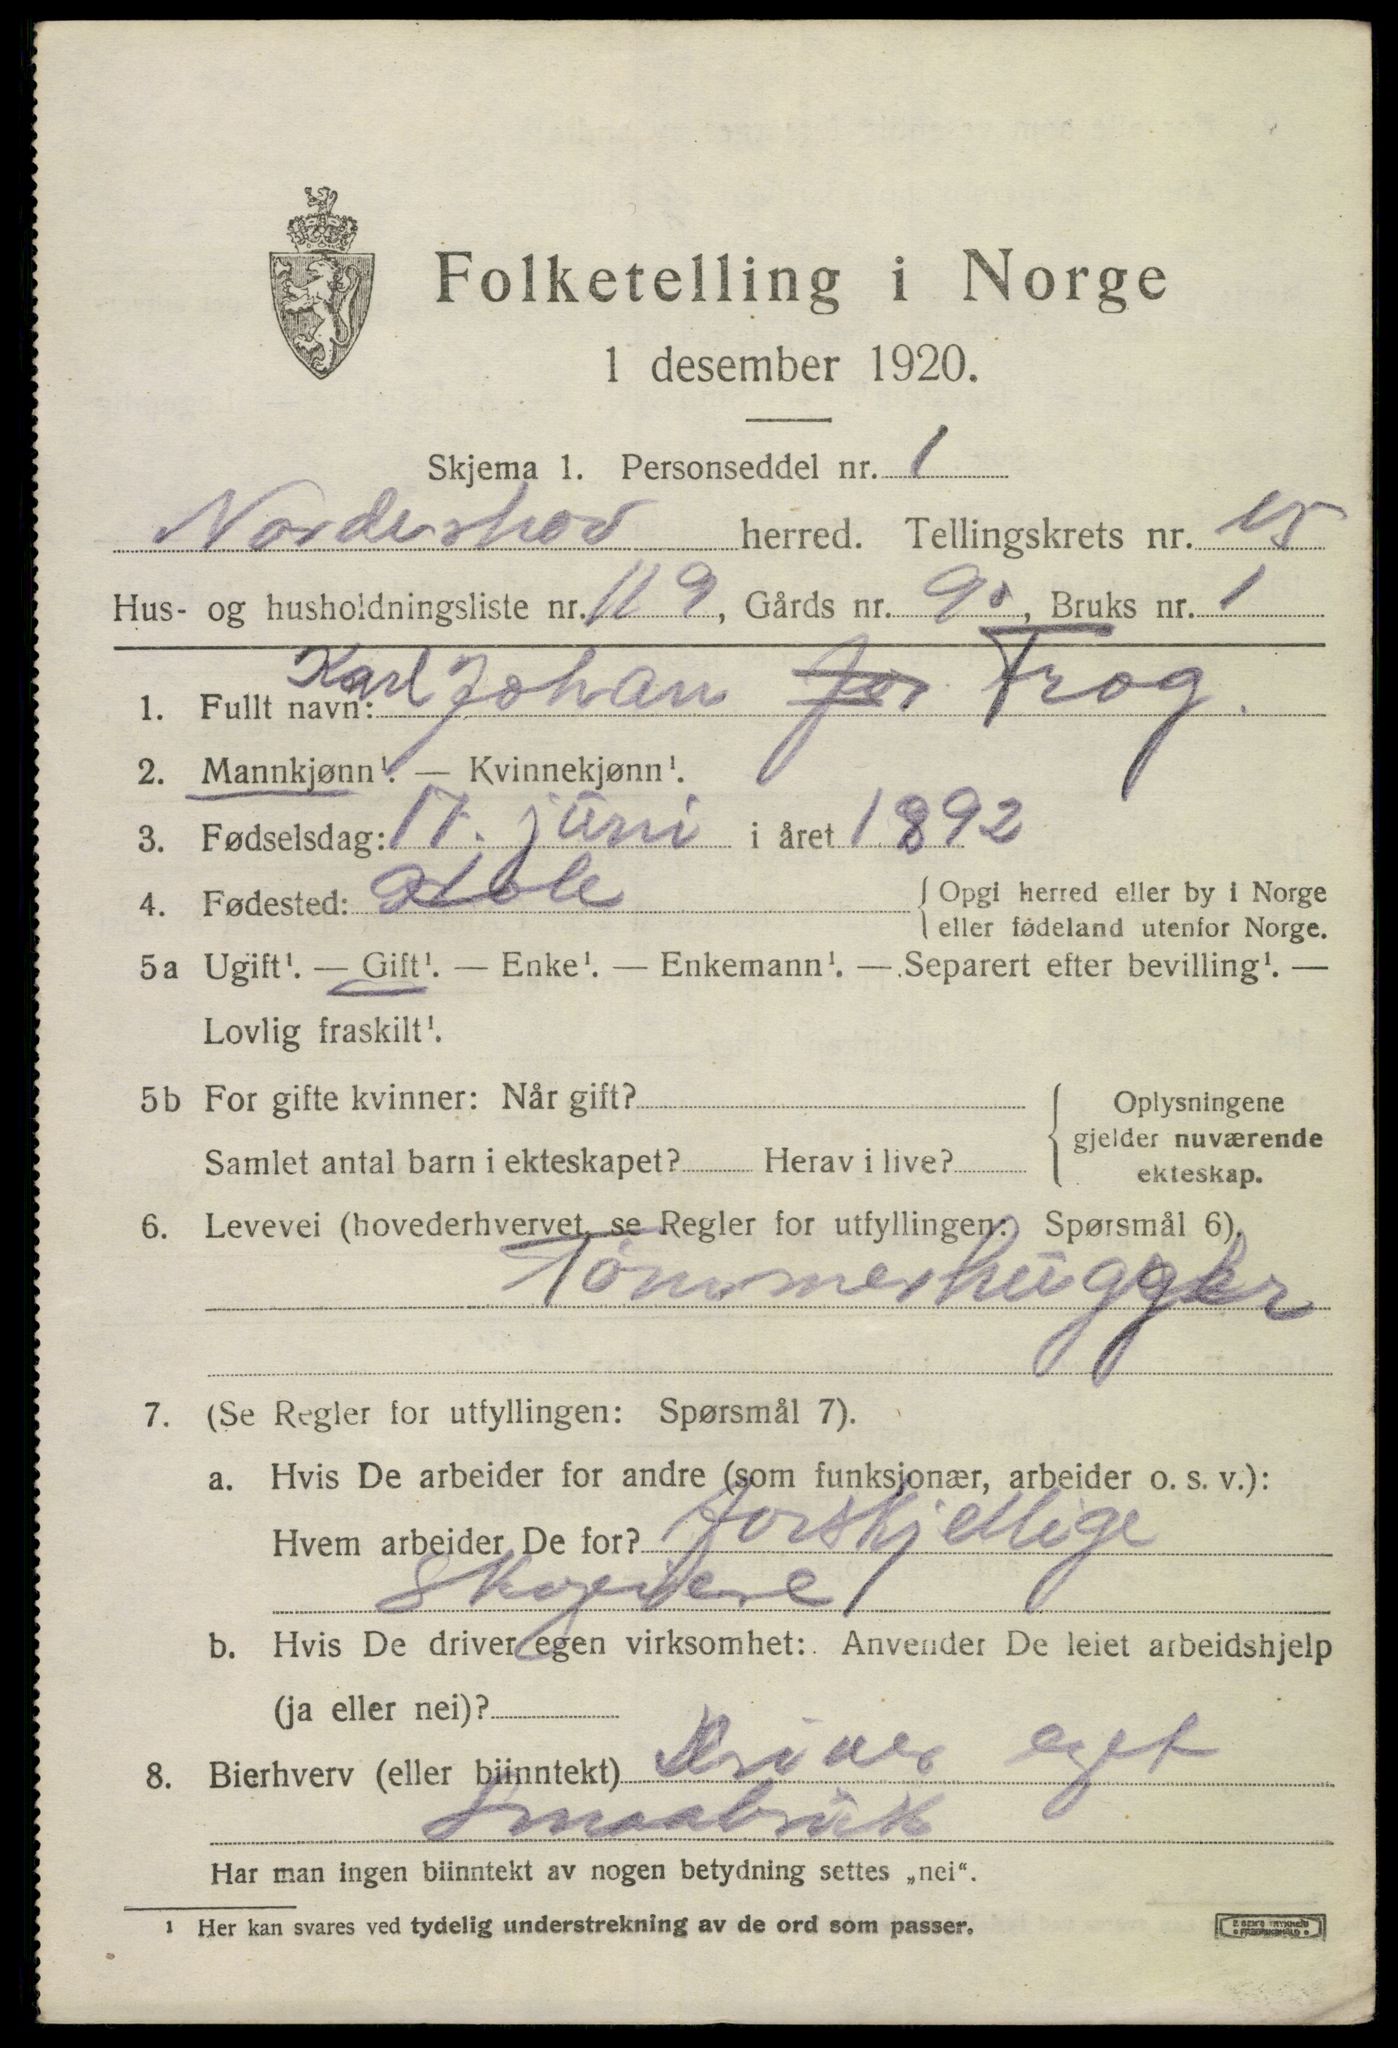 Folketelling i Norge
1 desember 1920.
Skjema 1. Personseddel nr. 1
Norderhov herred. Tellingskrets nr. 15
Hus- og husholdningsliste nr. 119, Gårds nr. 90, Bruks nr. 1
1. Fullt navn: Karl Johan Trog.
2. Mannkjønn¹. — Kvinnekjønn¹.
3. Fødselsdag: 17. juni i året 1892
4. Fødested: Hole { Opgi herred eller by i Norge
eller fødeland utenfor Norge.
5a Ugift¹. — Gift¹. — Enke¹. — Enkemann¹. — Separert efter bevilling¹. —
Lovlig fraskilt¹.
5b For gifte kvinner: Når gift?
Samlet antal barn i ekteskapet? Herav i live?
Oplysningene
gjelder nuværende
ekteskap.
6. Levevei (hovederhvervet, se Regler for utfyllingen: Spørsmål 6).
Tømmerhugger
7. (Se Regler for utfyllingen: Spørsmål 7).
a. Hvis De arbeider for andre (som funksjonær, arbeider o. s. v.):
Hvem arbeider De for? forskjellige
Skogeiere
b. Hvis De driver egen virksomhet: Anvender De leiet arbeidshjelp
(ja eller nei)?
8. Bierhverv (eller biinntekt) Driver eget
Smaabruk
Har man ingen biinntekt av nogen betydning settes „nei“.
¹ Her kan svares ved tydelig understrekning av de ord som passer.